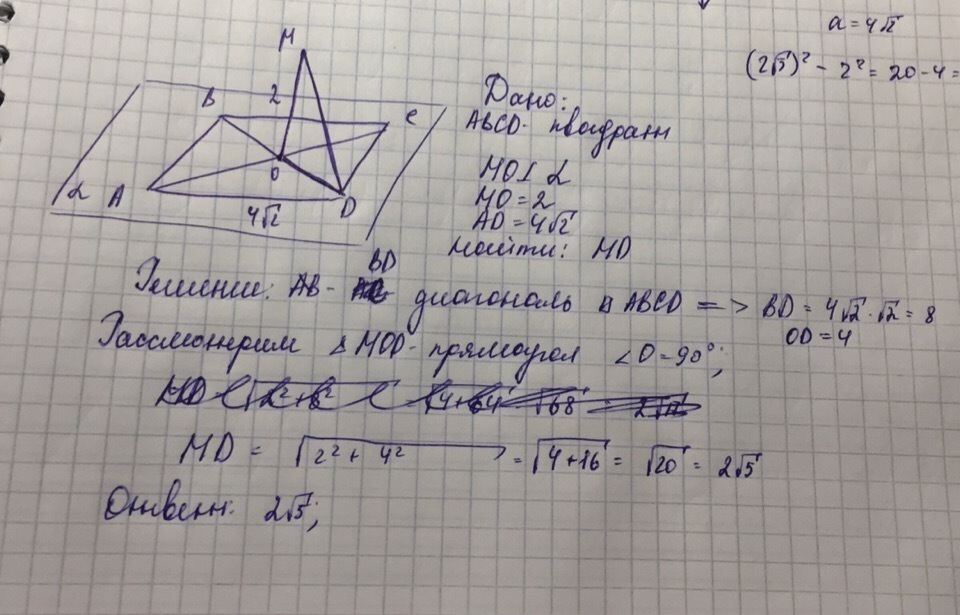 a = 4√2
(2√5)² - 2² = 20 - 4 =
M
B
2
C
O
α
A
4√2
D
Дано:
ABCD - квадрат
MO ⊥ α
MO = 2
AD = 4√2
Найти: MD
BD
Решение: AB - диагональ ABCD => BD = 4√2 · √2 = 8
OD = 4
Рассмотрим Δ MOD - прямоугол ∠O = 90°;
MD = √2² + 4² = √4+16 = √20 = 2√5
Ответ: 2√5;